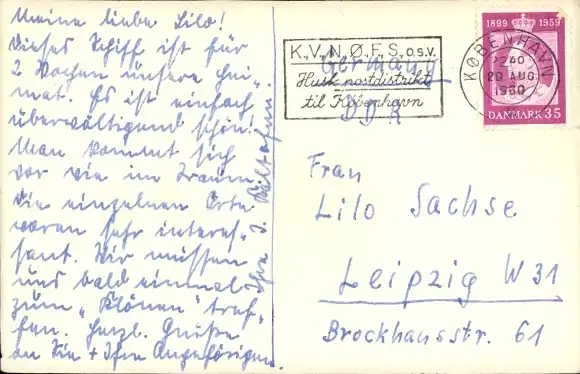 Meine liebe Lilo!
Dieses Schiff ist für
2 Wochen unsere Hei-
mat. Es ist einfach
überwältigend schön!
Man kommt sich
vor wie im Traum.
Die einzelnen Orte
waren sehr interes-
sant. Wir müssen
uns bald einmal
zum "Klönen" tref-
fen. Herzl. Grüße
an Sie + Ihre Angehörigen.
Ihre J.
K.V.N.Ø.F.S. o.s.v.
Husk postdistrikt
til København
Germany
DDR
KØBENHAVN
29 AUG.
1960
1899 1959
DANMARK 35
Frau
Lilo Sachse
Leipzig W 31
Brockhausstr. 61